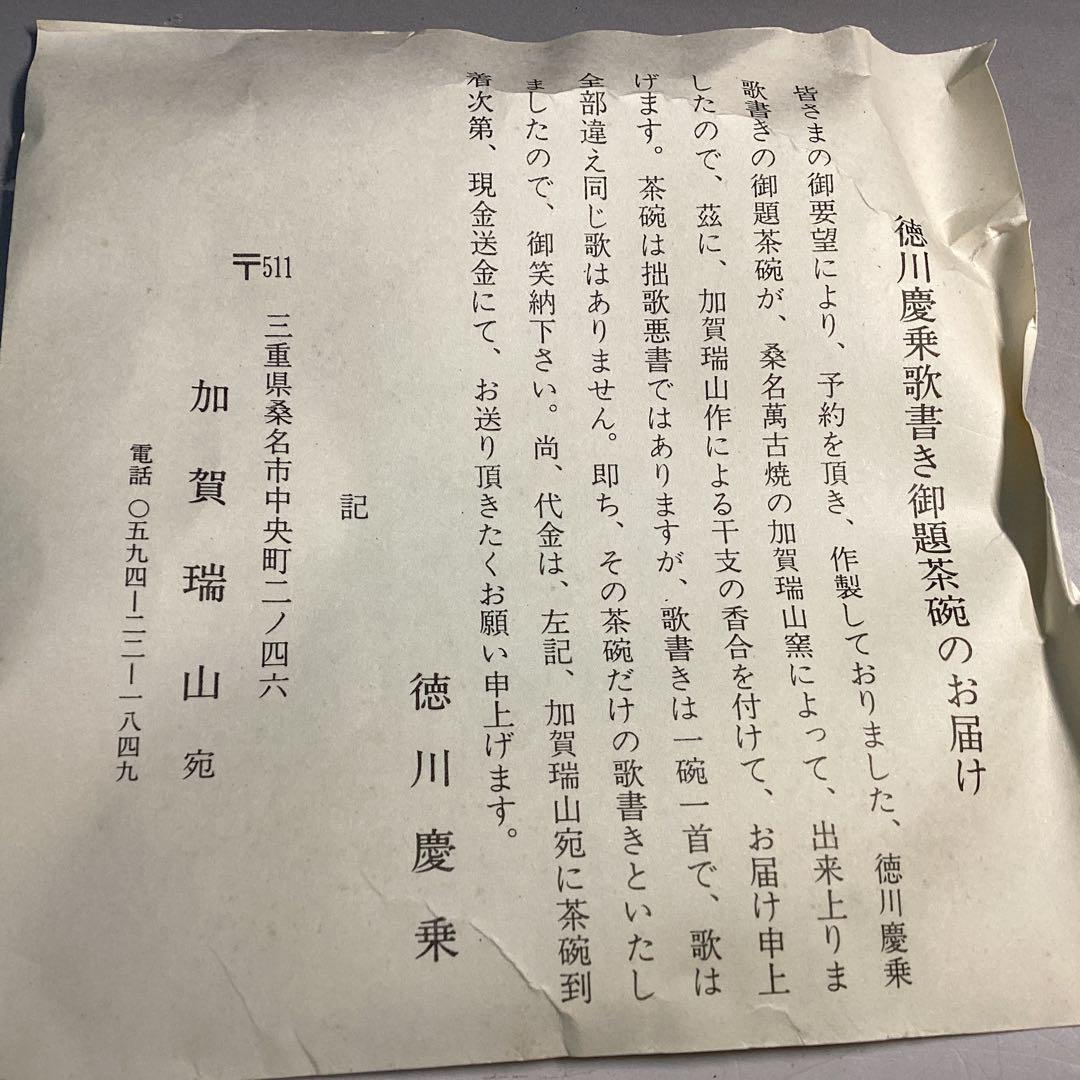 徳川慶乗歌書き御題茶碗のお届け
皆さまの御要望により、予約を頂き、作製しておりました、徳川慶乗
歌書きの御題茶碗が、桑名萬古焼の加賀瑞山窯によって、出来上りま
したので、茲に、加賀瑞山作による干支の香合を付けて、お届け申上
げます。茶碗は拙歌悪書ではありますが、歌書きは一碗一首で、歌は
全部違え同じ歌はありません。即ち、その茶碗だけの歌書きといたし
ましたので、御笑納下さい。尚、代金は、左記、加賀瑞山宛に茶碗到
着次第、現金送金にて、お送り頂きたくお願い申上げます。
徳川慶乗
記
〒511 三重県桑名市中央町二ノ四六
加賀瑞山宛
電話 〇五九四ー二二ー一八四九